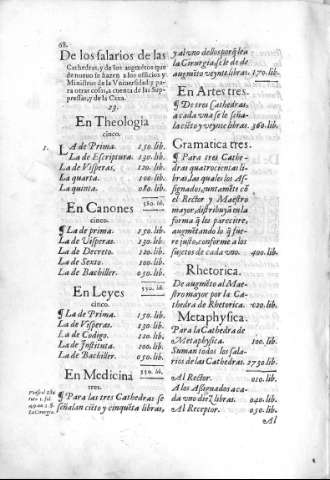 68.
De los salarios de las
Cathedras, y de los augmẽtos que
de nueuo se hazen a los officios y
Ministros de la Vniuersidad y pa-
ra otras cosas, a cuenta de las Sup-
pressas, y de la Caxa.
23.
En Theologia
cinco.
1. LA de Prima. 150. lib.
La de Escriptura. 130. lib.
La de Visperas, 120. lib.
La quarta. 100. lib.
La quinta. 080. lib.
580. lib.
En Canones
cinco.
¶ La de prima. 150. lib.
La de Visperas. 130. lib.
La de Decreto. 120. lib.
La de Sexto. 100. lib.
La de Bachiller. 050. lib.
550. lib.
En Leyes
cinco.
¶ La de Prima. 150. lib.
La de Visperas. 130. lib.
La de Codigo. 120. lib.
La de Instituta. 100. lib.
La de Bachiller. 050. lib.
550. lib.
En Medicina
tres.
¶ Para las tres Cathedras se
señalan ciẽto y cinquẽta libras,
y al vno dellos porq̃ lea
la Cirurgia se le dé de
augmẽto veynte libras. 170. lib.
En Artes tres.
¶ De tres Cathedras,
a cada vna se le seña-
la ciẽto y veynte libras. 360. lib.
Gramatica tres.
¶ Para tres Cathe-
dras quatrocientas li-
bras, las quales los As-
signados, juntamẽte cõ
el Rector y Maestro
mayor, distribuyã en la
forma q̃ les pareciere,
augmẽtando lo q̃ fue-
re justo, conforme a los
sujetos de cada vno. 400. lib.
Rhetorica.
De augmẽto al Mae-
stro mayor por la Ca-
thedra de Rhetorica. 020. lib.
Metaphysica.
Para la Cathedra de
Metaphysica. 100. lib.
Suman todos los sala-
rios de las Cathedras. 2730. lib.
Al Rector. 010. lib.
A los Assignados aca-
da vno diez libras. 040. lib.
Al Receptor 030. lib.
Al